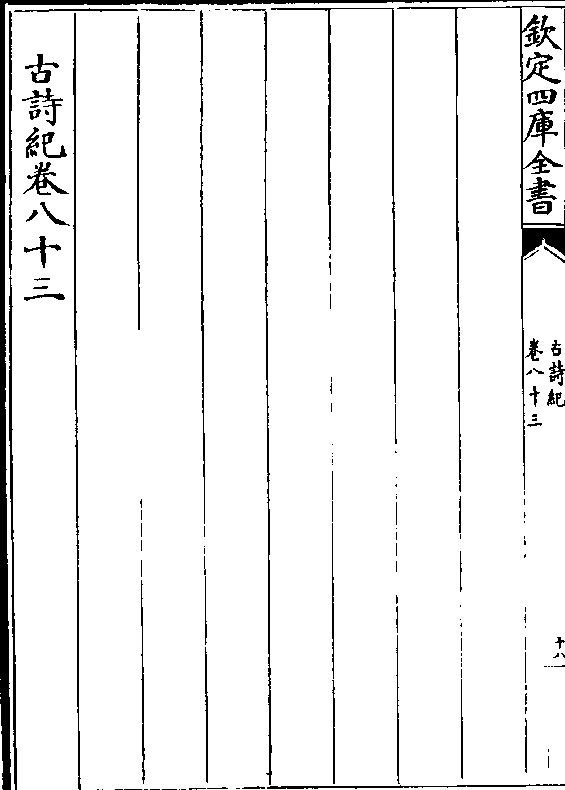 欽定四庫全書
古詩紀
卷八十三
十八
古詩紀卷八十三